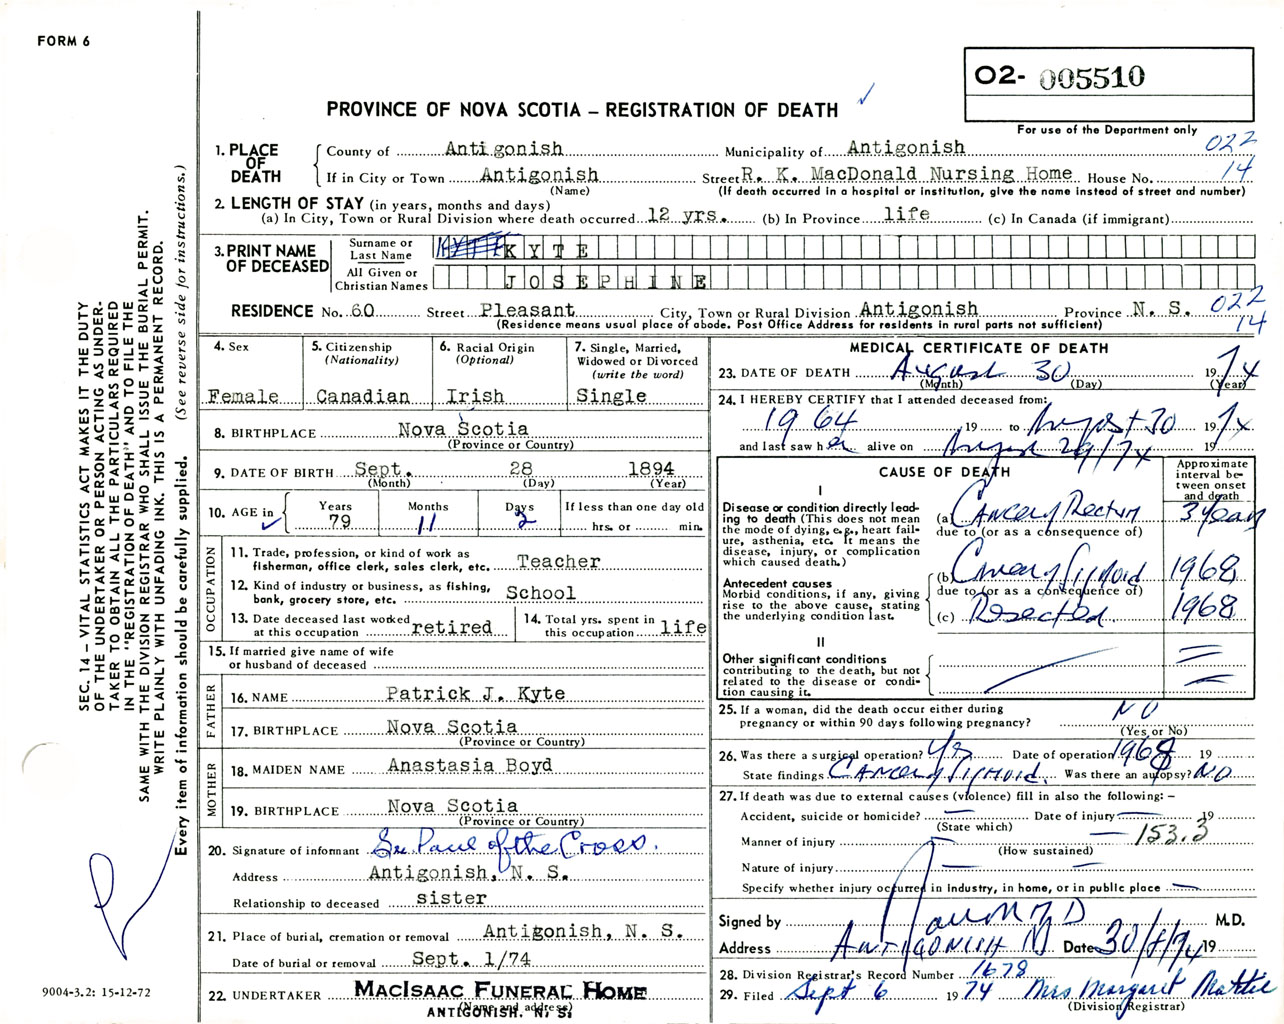 FORM 6
O2- 005510
PROVINCE OF NOVA SCOTIA – REGISTRATION OF DEATH
For use of the Department only
1. PLACE OF DEATH
County of Antigonish Municipality of Antigonish 022
If in City or Town Antigonish Street R. K. MacDonald Nursing Home House No. 14
(Name) (If death occurred in a hospital or institution, give the name instead of street and number)
2. LENGTH OF STAY (in years, months and days)
(a) In City, Town or Rural Division where death occurred 12 yrs. (b) In Province life (c) In Canada (if immigrant)
3. PRINT NAME OF DECEASED
Surname or Last Name KYTE
All Given or Christian Names JOSEPHINE
RESIDENCE No. 60 Street Pleasant City, Town or Rural Division Antigonish Province N. S. 022
(Residence means usual place of abode. Post Office Address for residents in rural parts not sufficient) 14
4. Sex
Female
5. Citizenship
(Nationality)
Canadian
6. Racial Origin
(Optional)
Irish
7. Single, Married,
Widowed or Divorced
(write the word)
Single
8. BIRTHPLACE Nova Scotia
(Province or Country)
9. DATE OF BIRTH Sept. 28 1894
(Month) (Day) (Year)
10. AGE in
Years Months Days If less than one day old
79 11 2 hrs. or min.
OCCUPATION
11. Trade, profession, or kind of work as
fisherman, office clerk, sales clerk, etc. Teacher
12. Kind of industry or business, as fishing,
bank, grocery store, etc. School
13. Date deceased last worked
at this occupation retired
14. Total yrs. spent in
this occupation life
15. If married give name of wife
or husband of deceased
FATHER
16. NAME Patrick J. Kyte
17. BIRTHPLACE Nova Scotia
(Province or Country)
MOTHER
18. MAIDEN NAME Anastasia Boyd
19. BIRTHPLACE Nova Scotia
(Province or Country)
20. Signature of informant Sr. Paul of the Cross.
Address Antigonish, N. S.
Relationship to deceased sister
21. Place of burial, cremation or removal Antigonish, N. S.
Date of burial or removal Sept. 1/74
22. UNDERTAKER MACISAAC FUNERAL HOME
(Name and address)
ANTIGONISH. N. S.
MEDICAL CERTIFICATE OF DEATH
23. DATE OF DEATH August 30 1974
(Month) (Day) (Year)
24. I HEREBY CERTIFY that I attended deceased from:
1964 19 to August 30 1974
and last saw her alive on August 29/74 19
CAUSE OF DEATH
Approximate
interval be-
tween onset
and death
I
Disease or condition directly lead-
ing to death (This does not mean
the mode of dying, e.g., heart fail-
ure, asthenia, etc. It means the
disease, injury, or complication
which caused death.)
(a) Cancer of Rectum 3 years
due to (or as a consequence of)
Antecedent causes
Morbid conditions, if any, giving
rise to the above cause, stating
the underlying condition last.
(b) Cancer of Sigmoid 1968
due to (or as a consequence of)
(c) Resected. 1968
II
Other significant conditions
contributing to the death, but not
related to the disease or condi-
tion causing it.
25. If a woman, did the death occur either during
pregnancy or within 90 days following pregnancy? NO
(Yes or No)
26. Was there a surgical operation? Yes Date of operation 1968 19
State findings Cancer of Sigmoid. Was there an autopsy? NO
27. If death was due to external causes (violence) fill in also the following: –
Accident, suicide or homicide? Date of injury 19
(State which)
Manner of injury 153.3
(How sustained)
Nature of injury
Specify whether injury occurred in industry, in home, or in public place
Signed by M.D.
Address ANTIGONISH Date 30/8/74 19
28. Division Registrar's Record Number 1678
29. Filed Sept 6 1974 Mrs Margaret Mattie
(Division Registrar)
SEC. 14 – VITAL STATISTICS ACT MAKES IT THE DUTY
OF THE UNDERTAKER OR PERSON ACTING AS UNDER-
TAKER TO OBTAIN ALL THE PARTICULARS REQUIRED
IN THE "REGISTRATION OF DEATH" AND TO FILE THE
SAME WITH THE DIVISION REGISTRAR WHO SHALL ISSUE THE BURIAL PERMIT.
WRITE PLAINLY WITH UNFADING INK. THIS IS A PERMANENT RECORD.
Every item of information should be carefully supplied. (See reverse side for instructions.)
9004-3.2: 15-12-72